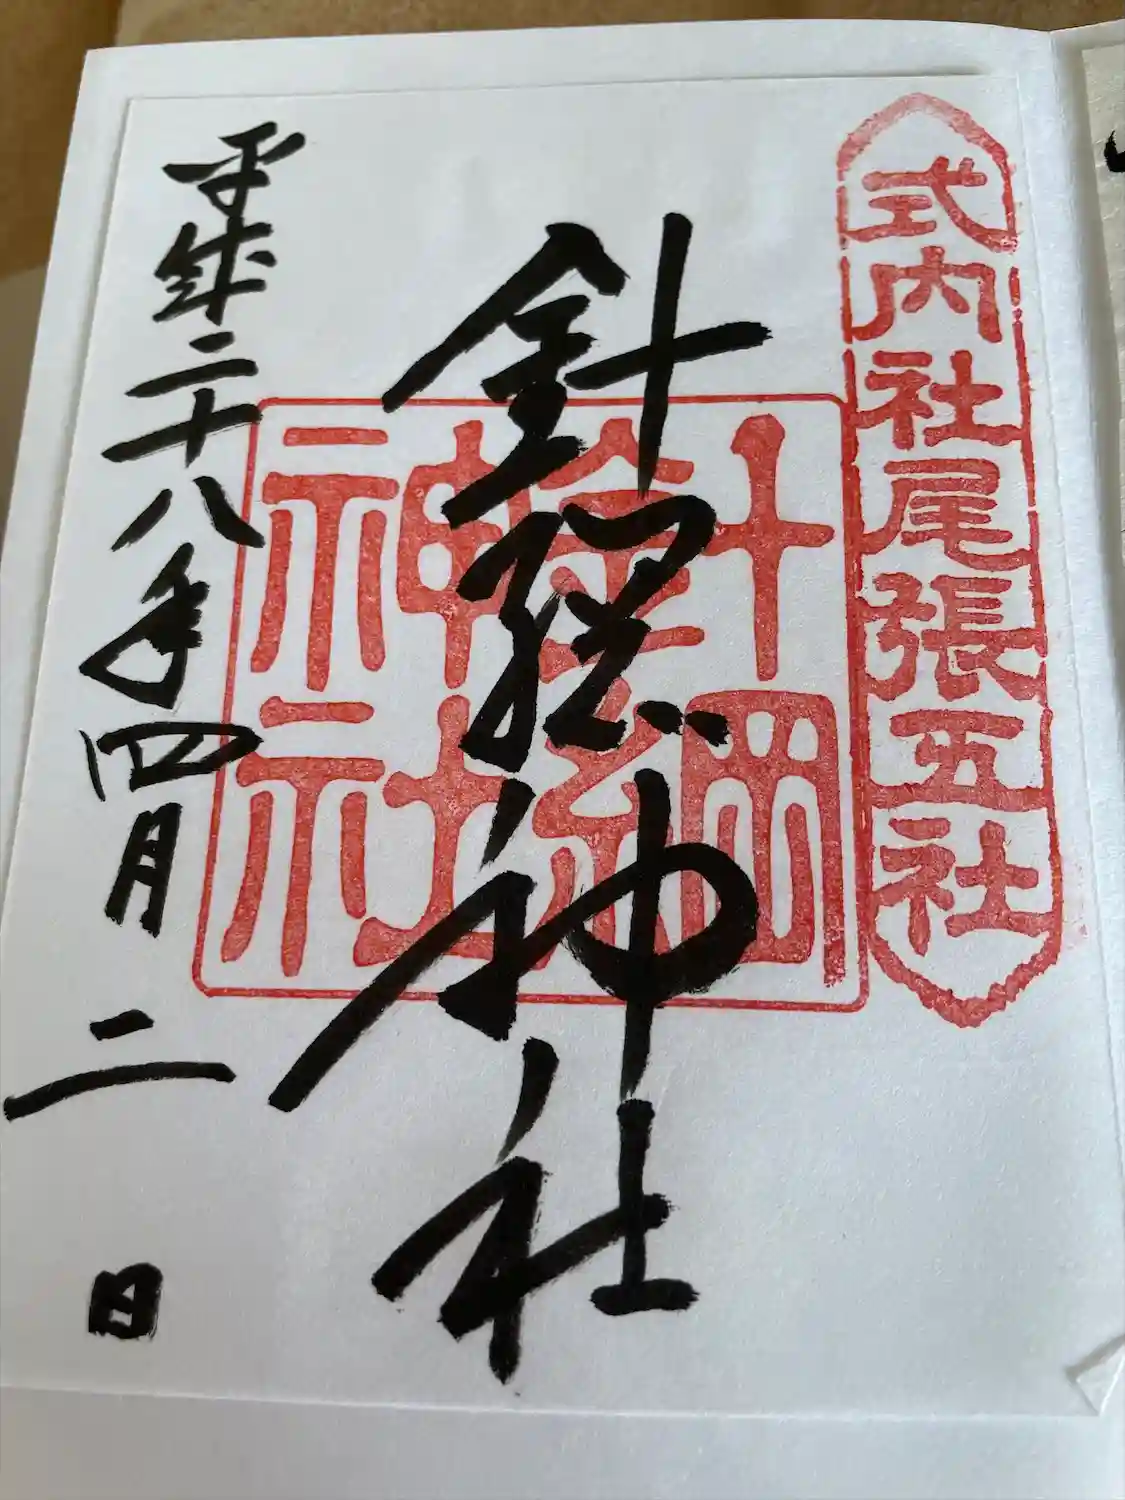 式内社尾張五社
針綱神社
針綱神社
平成二十八年四月二日